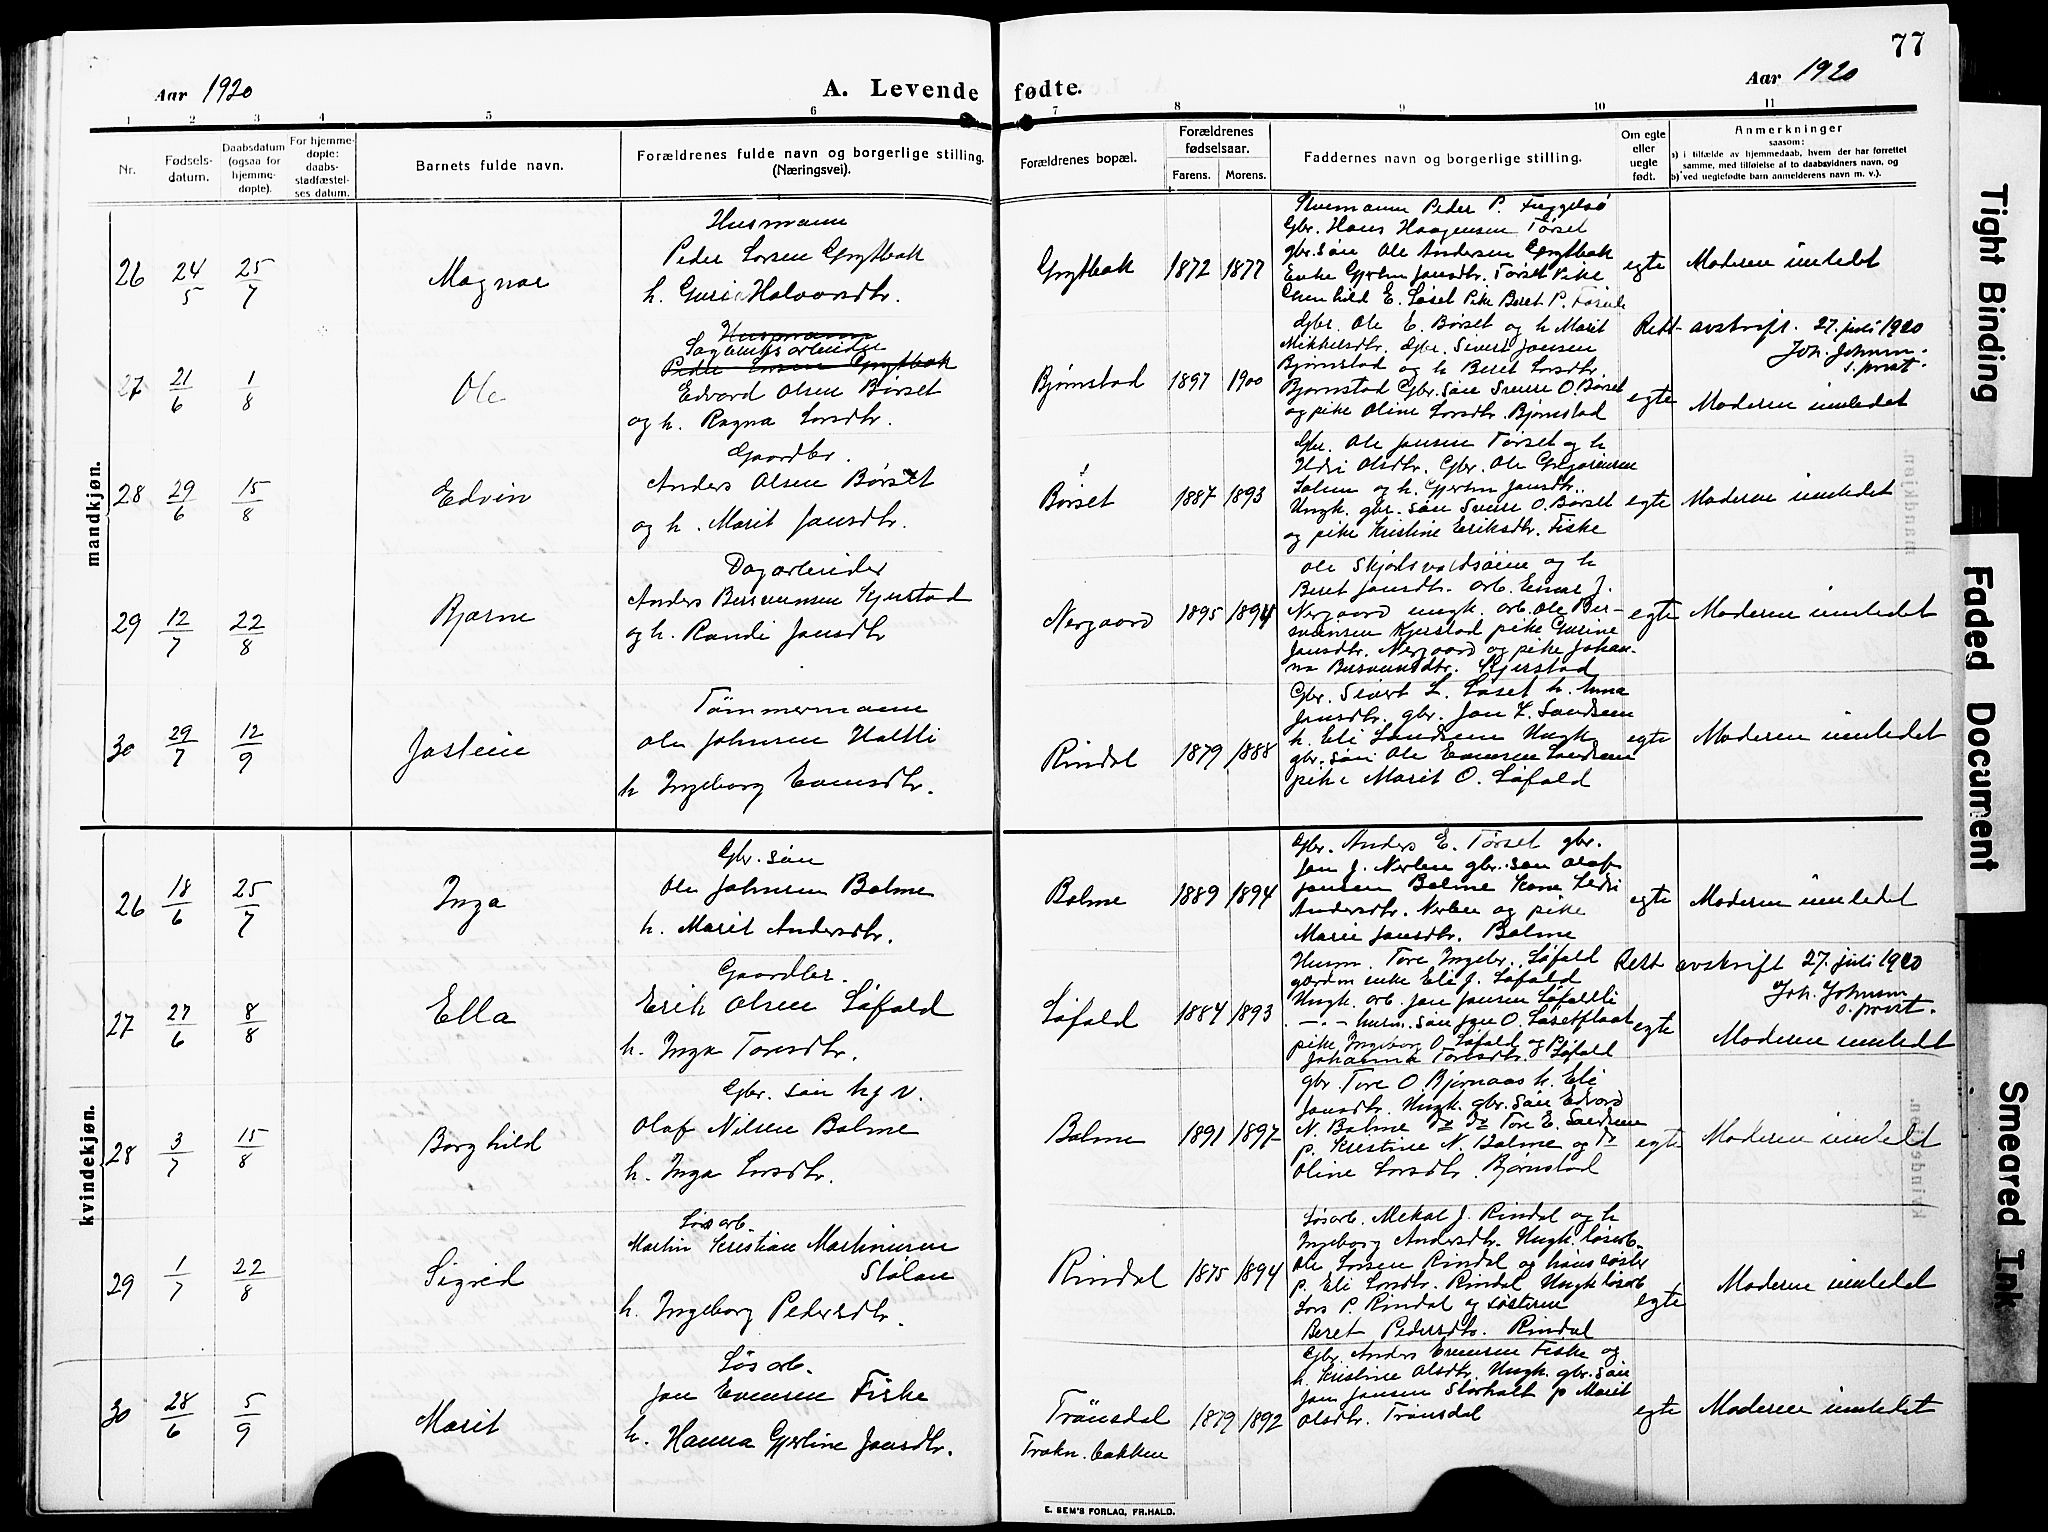 77
Aar 1920
A. Levende fødte.
Aar 1920
1 2 3 4 5 6 7 8 9 10 11
Nr.
Fødsels-
datum.
Daabsdatum
(ogsaa for
hjemme-
døpte).
For hjemme-
døpte:
daabs-
stadfæstel-
ses datum.
Barnets fulde navn.
Forældrenes fulde navn og borgerlige stilling.
(Næringsvei).
Forældrenes bopæl.
Forældrenes
fødselsaar.
Farens. Morens.
Faddernes navn og borgerlige stilling.
Om egte
eller
uegte
født.
Anmerkninger
saasom:
a) i tilfælde av hjemmedaab, hvem der har forrettet
samme, med tilføielse af to daabsvidners navn, og
b) ved uegtefødte barn anmelderens navn m. v.).
mandkjøn.
26 24/5 25/7 Magnar
Husmann
Peder Larsen Grytbak
h. Guri Halvorsdtr.
Grytbak 1872 1877
Gbr. Hans Haagensen Tørset
gbr. søn Ole Andersen Grytbak
Enke Gjertru Jonsdtr. Tørset Pike
Gunhild E. Løset Pike Beret P.
egte Moderen innledet
Rett avskrift. 27. juli 1920
Joh. Johnsen.
s. prest.
27 21/6 1/8 Ole
Husmann
Sagbruksarbeider
Peder Larsen Grytbak
Edvard Olsen Børset
og h. Ragna Larsdtr.
Bjørnstad 1897 1900
Gbr. Ole E. Børset og h Marit
Mikkelsdtr. Gbr. Sivert Jonsen
Bjørnstad og h Beret Larsdtr.
Bjørnstad Gbr. søn Sverre O. Børset
og pike Oline Larsdtr. Bjørnstad
egte Moderen innledet
28 29/6 15/8 Edvin
Gaardbr.
Anders Olsen Børset
og h. Marit Jonsdtr.
Børset 1887 1893
Gbr. Ole Jonsen Tørset og h
Ildri Olsdtr. Gbr. Ole Gregorsensen
og h. Gjertru Jonsdtr.
Ungk. gbr. søn Sverre O. Børset
og pike Kristine Eriksdtr. Fiske
egte Moderen innledet
29 12/7 22/8 Bjarne
Dagarbeider
Anders Bersvensen Kjerstad
og h. Randi Jonsdtr
Nergaard 1895 1894
Ole Skjølsvoldsøien og h
Beret Jonsdtr. arb. Einar J.
Nergaard ungk. arb. Ole Ber-
svensen Kjerstad pike Gurine
Jonsdtr. Nergaard og pike Johan-
na Bersvensdtr. Kjerstad
egte Moderen innledet
30 29/7 12/9 Jostein
Tømmermann
Ole Johnsen Haltli
h Ingeborg Evensdtr.
Rindal 1879 1888
Gbr. Sivert L. Løset h. Anna
Jonsdtr. gbr. Jon L. Sandsem
h. Eli Sandsem Ungk
gbr. søn Ole Evensen Sandsem
pike Marit O. Løfald
egte Moderen innledet
kvindekjøn.
26 18/6 25/7 Inga
Gbr. søn
Ole Johnsen Bolme
h. Marit Andersdtr.
Bolme 1889 1894
Gbr. Anders E. Tørset gbr.
Jon J. Nerlen gbr. søn Olaf
Jonsen Bolme Kone Ildri
Andersdtr. Nerlen og pike
Marie Jonsdtr. Bolme
egte Moderen innledet
Rett avskrift 27. juli 1920
Joh. Johnsen
s. prest.
27 27/6 8/8 Ella
Gaardbr.
Erik Olsen Løfald
h. Inga Toresdtr.
Løfald 1884 1893
Husm. Tore Ingebr. Løfald
gardm enke Eli J. Løfald
Ungk. arb. Jon Jonsen Løfaldli
- " - husm. søn Jon O. Løsetflaat
pike Ingeborg O Løfald og P
Johanna Toresdtr. Løfald
egte Moderen innledet
28 3/7 15/8 Borghild
Gbr. søn hjv.
Olaf Nilsen Bolme
h. Inga Larsdtr.
Bolme 1891 1897
gbr. Tore O Bjørnaas h. Eli
Jonsdtr. Ungk. gbr. søn Edvard
N. Bolme do do Tore E. Sandsem
p. Kristine N. Bolme og do
Oline Larsdtr. Bjørnstad
egte Moderen innledet
29 1/7 22/8 Sigrid
Løsarb.
Martin Kristian Martinusen
Stølan
h. Ingeborg Pedersdtr.
Rindal 1875 1894
Løsarb. Mekal J. Rindal og h
Ingeborg Andersdtr. Ungk. løsarb.
Ole Larsen Rindal og hans søster
p. Eli Larsdtr. Rindal Ungk løsarb
Lars P. Rindal og søsteren
Beret Pedersdtr. Rindal
egte Moderen innledet
30 28/6 5/9 Marit
Løsarb.
Jon Evensen Fiske
h. Hanna Gjertine Jonsdtr.
Trønsdal
Trøkn. bakken
1879 1892
Gbr. Anders Evensen Fiske og
h. Kristine Olsdtr. Ungk. gbr. søn
Jon Jonsen Storholt p Marit
Olsdtr. Trønsdal
egte Moderen innledet
E. SEM'S FORLAG, FR.HALD.
Tight Binding
Faded Document
Smeared Ink